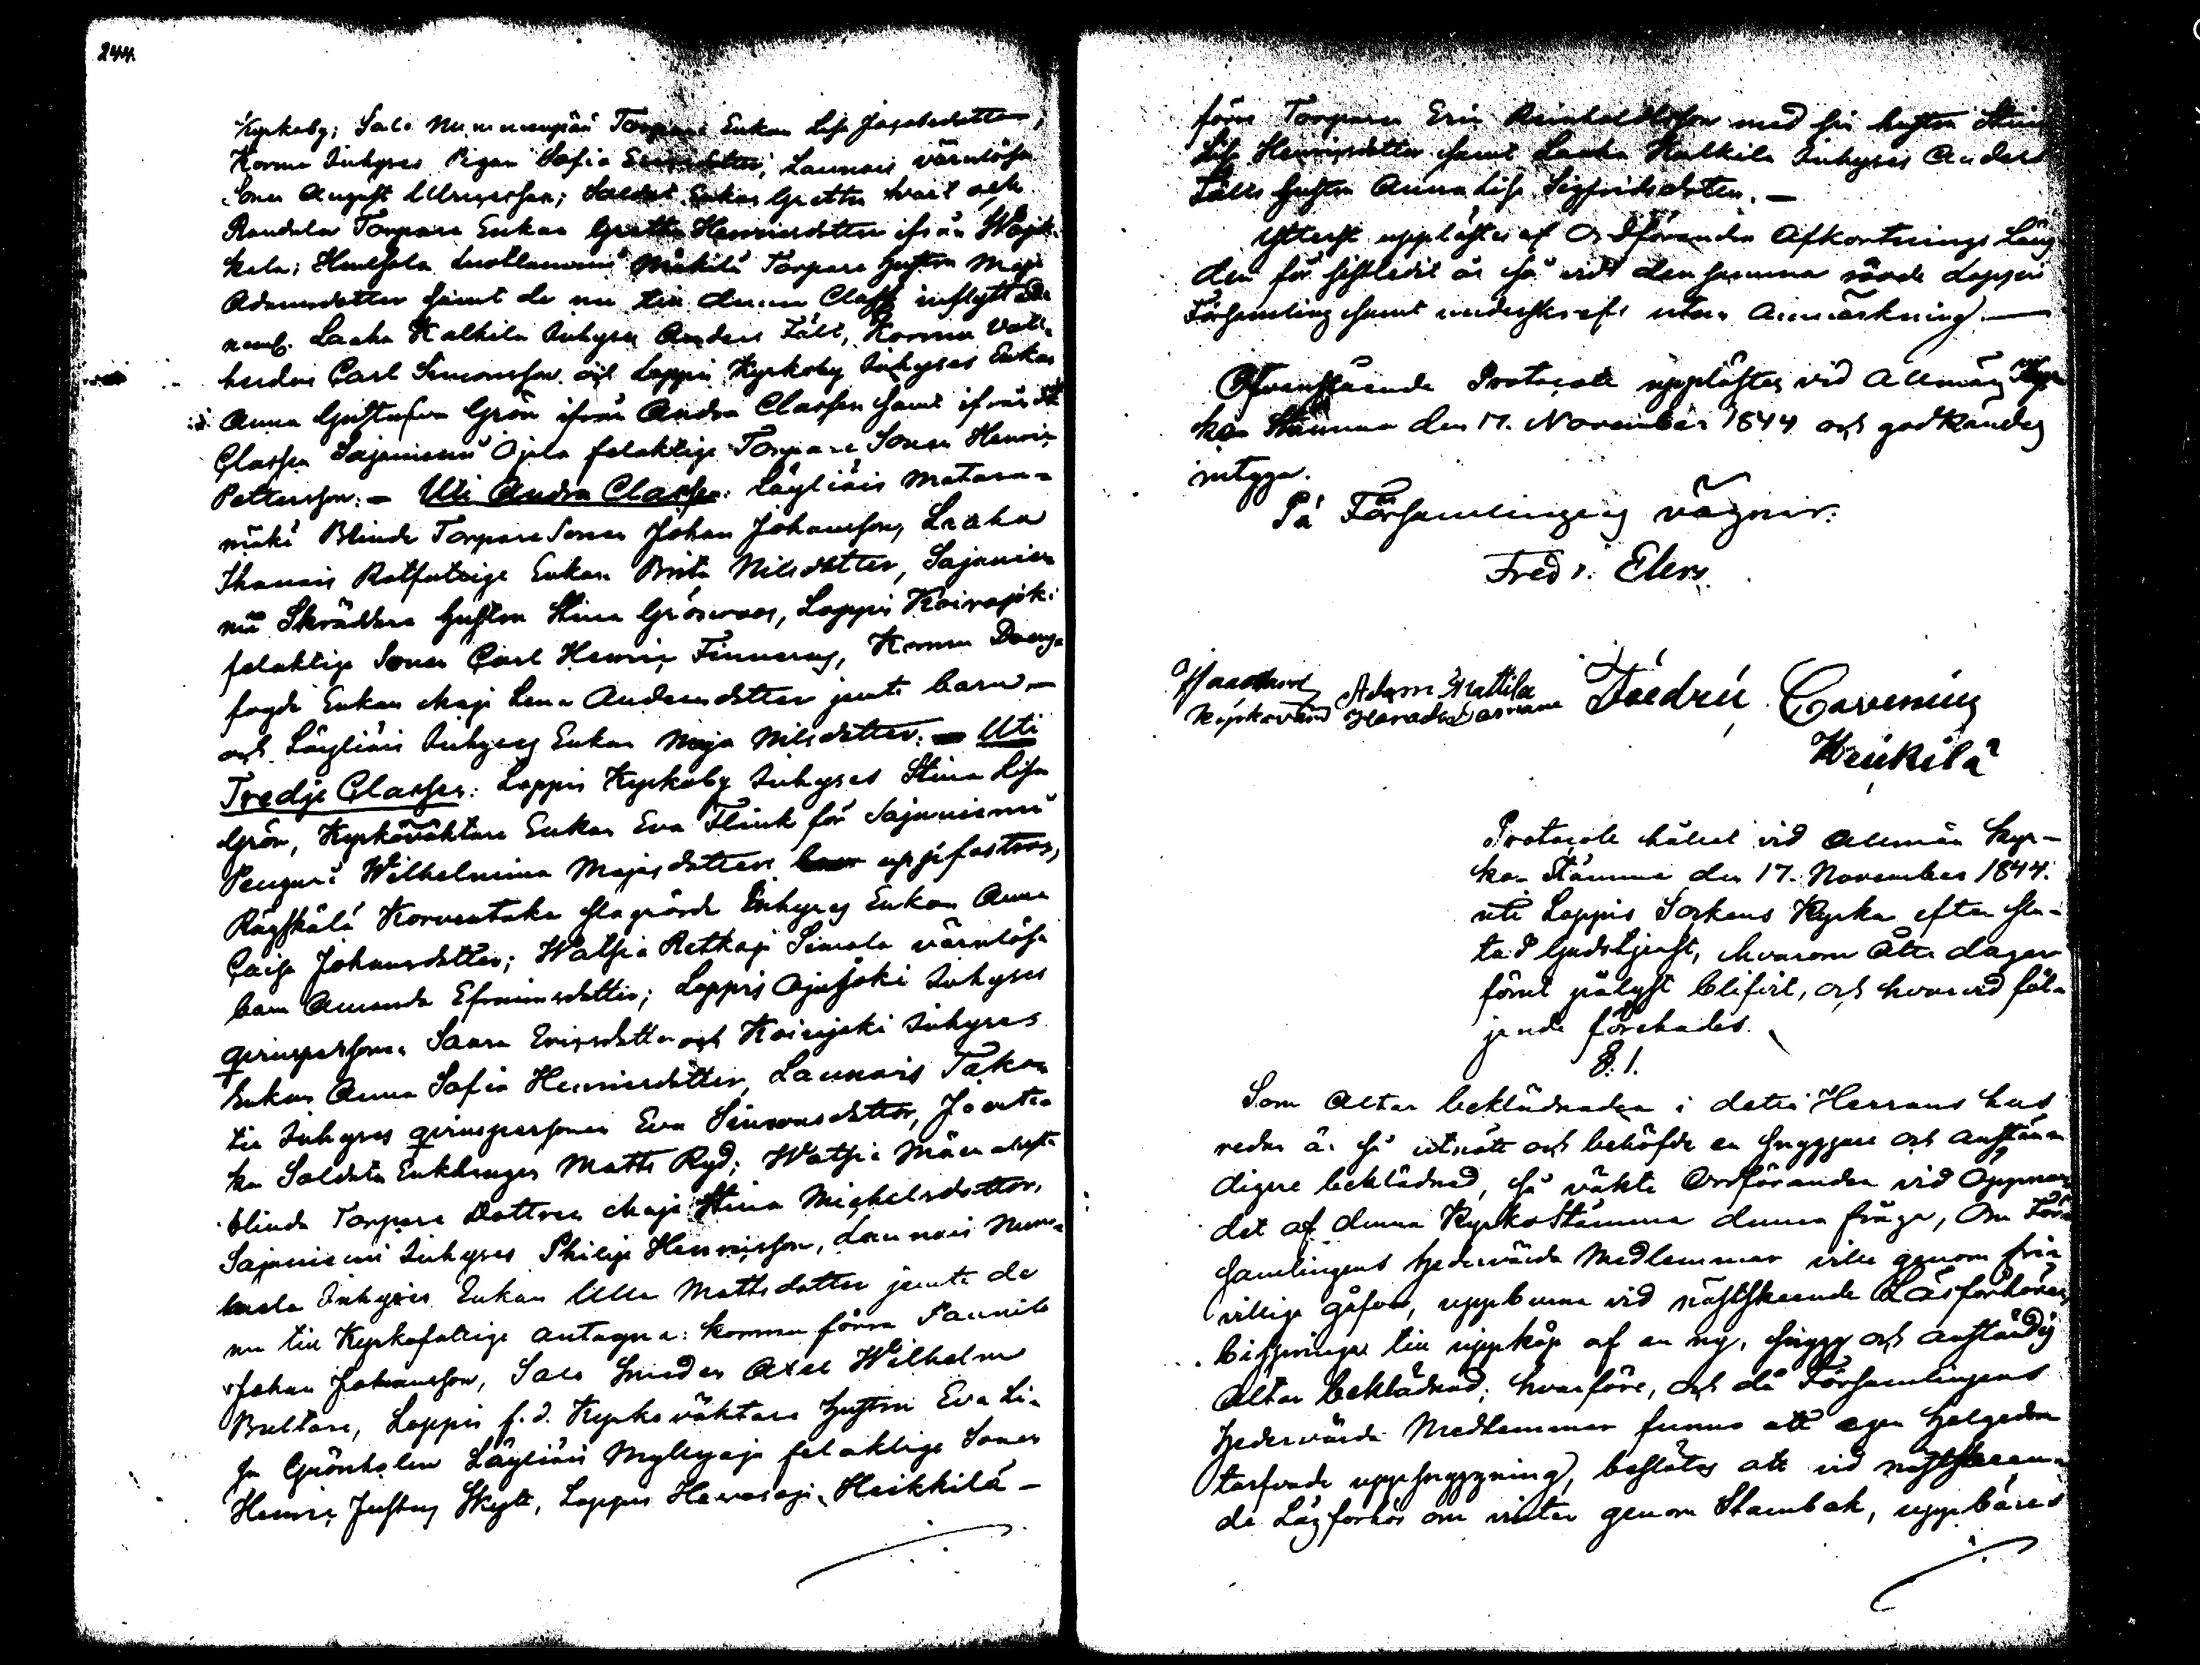 244.
Kyrkoby; Salo Nummenpää Torpare Enkan Lisa Jacobsdotter,
Kormu Inhyses Pigan Sofia Ericsdotter; Launois värnlösa
Sonen August Ulricsson; Soldat Enkan Gretta och
Torpare Enkan Gretta Henricsdotter ifrån Wojs-
kala; Hunsala Mäkilä Torpare hustrun Maja
Adamsdotter samt de nu till denna Class inflyttade
neml. Laaka Kalkila Inhyses Anders Fält, Kormu Vall-
herden Carl Simonsson och Loppis Kyrkoby Inhyses Enkan
Anna Gustafva Grön ifrån Andra Classen samt ifrån
Classen Sajaniemi Ojala felaktige Torpare Sonen Henric
Pettersson. – Uti Andra Classen: Läyliäis Matara-
mäki Blinde Torpare Sonen Johan Johansson, Laaka
Ihanais Rotfattige Enkan Brita Nilsdotter, Sajanie-
mi Skräddare hustrun Stina Grönroos, Loppis Koirajoki
felaktige Sonen Carl Henric Finnerus, Kormu Dreng-
fogde Enkan Maja Lena Andersdotter jemte barn –
och Läyliäis Inhyses Enkan Maja Nilsdotter. – Uti
Tredje Classen: Loppis Kyrkoby Inhyses Stina Lisa
Grön, Kyrkoväktare Enkan Eva Flink för Sajaniemi
Wilhelmina Majasdotters uppfostran,
Räyskälä Korventaka Inhyses Enkan Anna
Caisa Johansdotter; Watsia Retkoja Simola värnlösa
barn Amanda Efraimsdotter; Loppis Ojajoki Inhyses
qvinspersonen Saara Ericsdotter och Koirajoki Inhyses
Enkan Anna Sofia Henricsdotter, Launois Takan
till Inhyses qvinspersonen Eva Simonsdotter,
Soldats Enklingen Matts Ryd; Watsia
blinda Torpare Dottren Maja Stina Michelsdotter,
Sajaniemi Inhyses Philip Henricsson, Launois
Inhyses Enkan Ulla Mattsdotter jemte de
nu till Kyrkofattige antagna: Kormu förra
Johan Johansson, Salo Smeden Axel Wilhelm
Bultare, Loppis f. d. Kyrkoväktare hustrun Eva Li-
sa Grönholm Läyliäis Myllyoja felaktige Sonen
Henric Justus Skytt, Loppis Hevosoja, Heikkilä –
förra Torparen Eric Reinholdsson med sin hustru Stina
Lisa Henricsdotter samt Laaka Kalkila Inhyses Anders
Fälts hustru Anna Lisa Sigfridsdotter. –
Ytterst upplästes af Ordföranden Afkortnings Läng
den för sistledit år så vidt den samma rörde Loppis
Församling samt underskrefs utan Anmärkning. –
Ofvanstående Protocoll upplästes vid Allmän Kyr-
ko Stämma den 17. November 1844 och godkändes
intyga.
På Församlingens vägnar:
Fredr. Elers
Kyrkovärd Adam Mattila
Häradsdomare Fredric Corenius
Heikkilä
Protocoll hållet vid Allmän Kyr-
ko-Stämma den 17. November 1844.
uti Loppis Sockens Kyrka efter slu-
tad Gudstjenst, hvarom åtta dagar
förut pålyst blifvit, och hvarvid föl-
jande förehades.
§. 1.
Som Altar beklädnaden i detta Herrans hus
redan är så utnött och behöfde en snyggare och anstän-
digare beklädnad, så väkte Ordföranden vid öppnan-
det af denna KyrkoStämma denna fråga, Om För-
samlingens hedervärda Medlemmar ville genom fri-
villige gåfvor, uppburna vid nästskeende Läsförhörer,
till uppköp af en ny, snygg och anständig
Altar beklädnad; hvarföre, och då Församlingens
hedervärda Medlemmar funno att egen helgedom
tarfvade uppsnyggning, beslötes att vid nästskeen-
de Läsförhör om vinter genom Stambok, uppbäres